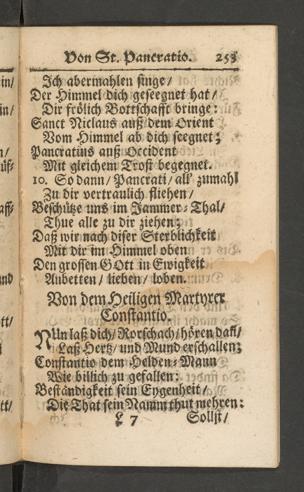 Von St. Pancratio. 253
Ich abermahlen singe/
Der Himmel dich geseegnet hat/
Dir frölich Bottschafft bringe:
Sanct Niclaus auß dem Orient
Vom Himmel ab dich seegnet;
Pancratius auß Occident
Mit gleichem Trost begegnet.
10. So dann/ Pancrati/ all' zumahl
Zu dir vertraulich fliehen/
Beschütze uns im Jammer-Thal/
Thue alle zu dir ziehen;
Daß wir nach diser Sterblichkeit
Mit dir im Himmel oben
Den grossen GOtt in Ewigkeit
Anbetten/ lieben/ loben.
Von dem Heiligen Martyrer
Constantio.
NUn laß dich/ Rorschach/ hören daß/
Laß Hertz/ und Mund erschallen;
Constantio dem Helden-Mann
Wie billich zu gefallen:
Beständigkeit sein Eygenheit/
Die That sein Namm thut mehren:
L 7 Sollst/